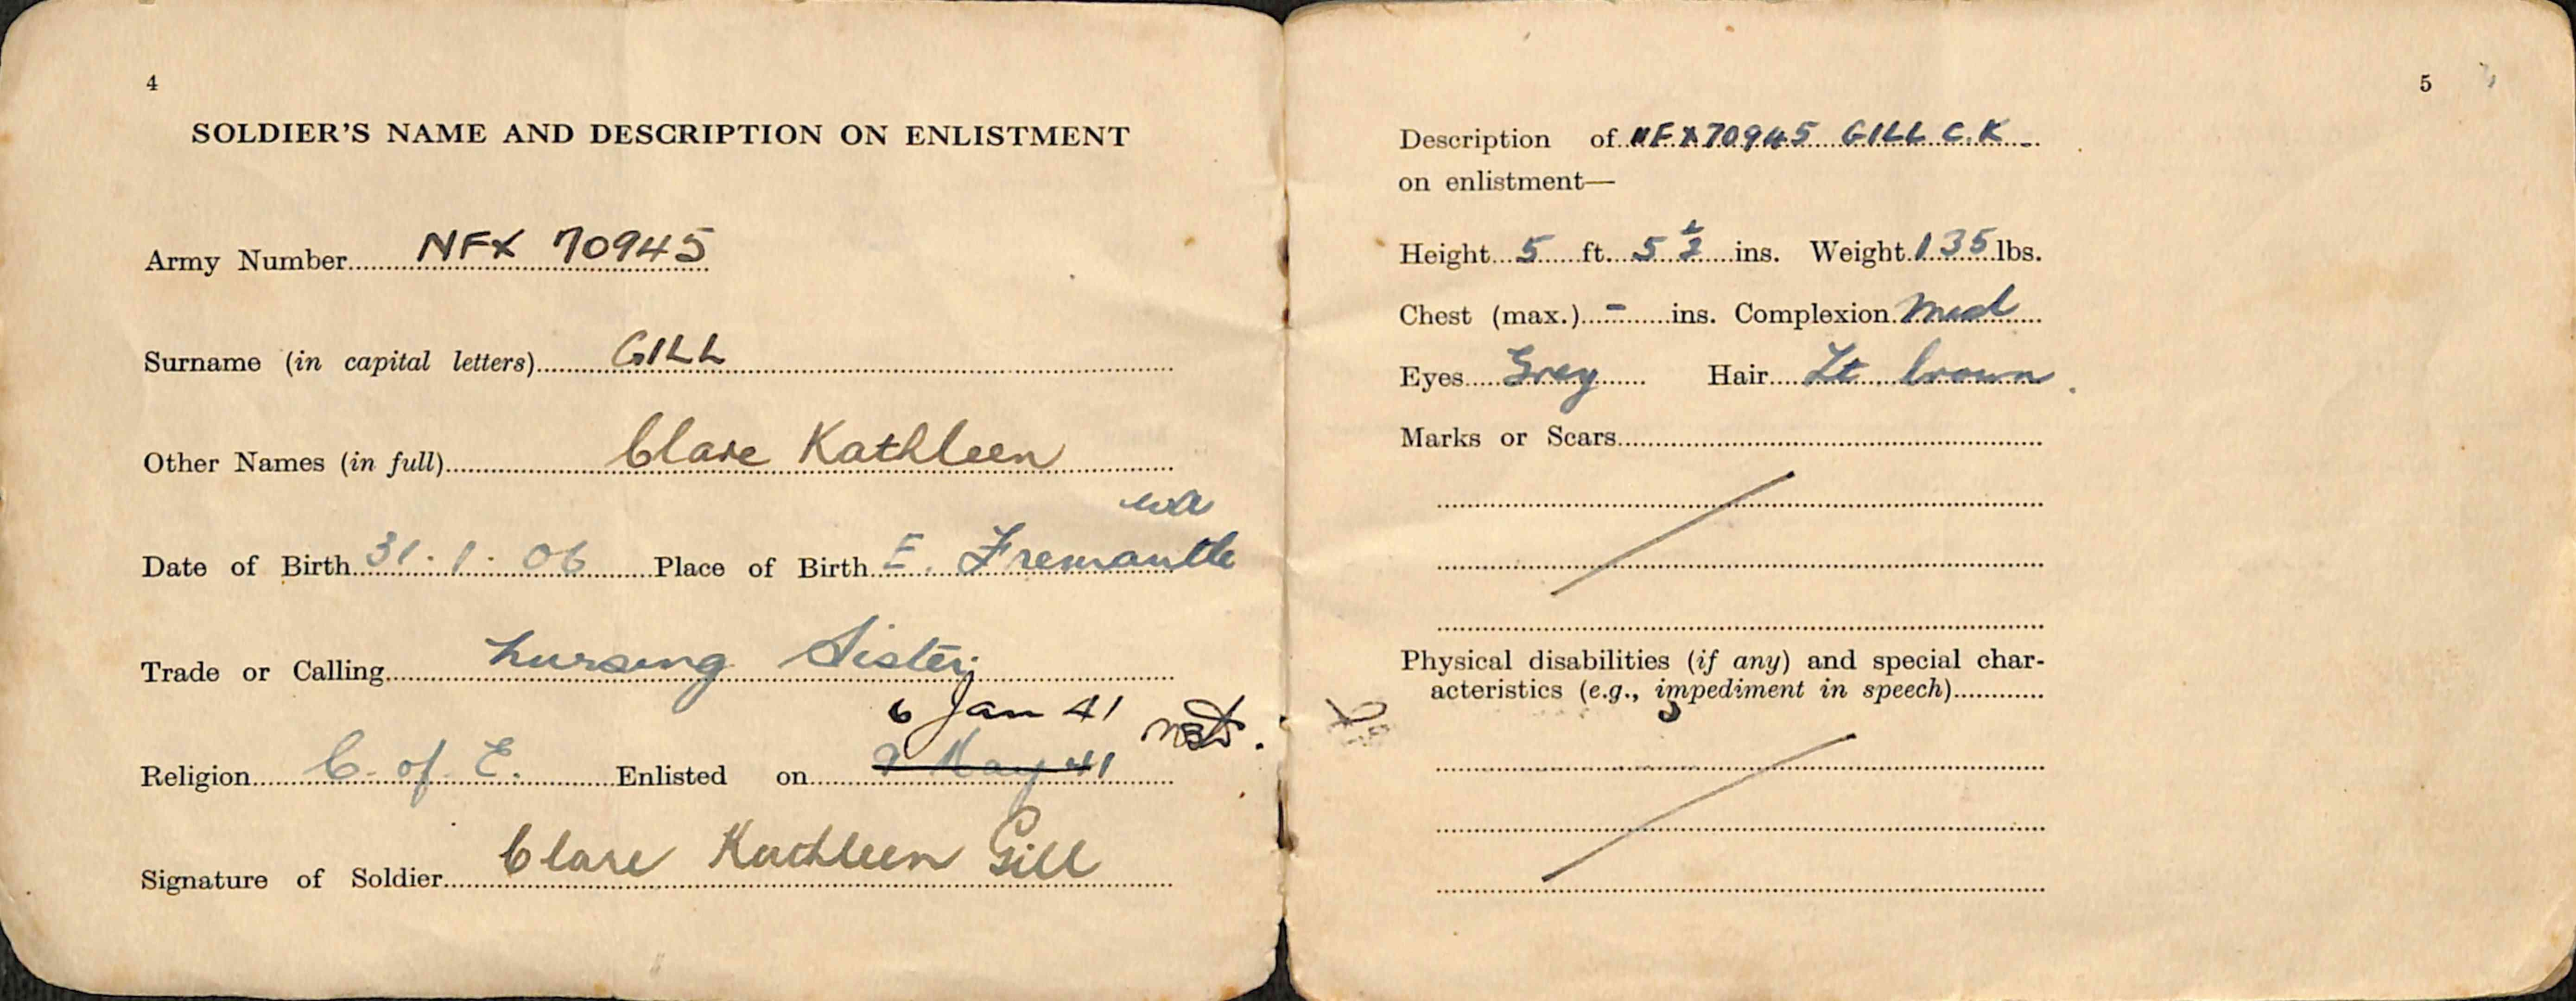 4
SOLDIER'S NAME AND DESCRIPTION ON ENLISTMENT
Army Number NFX 70945
Surname (in capital letters) GILL
Other Names (in full) Clare Kathleen
WA
Date of Birth 31.1.06 Place of Birth E. Fremantle
Trade or Calling Nursing Sister
6 Jan 41
Religion C. of E. Enlisted on 9 May 41
Signature of Soldier Clare Kathleen Gill
5
Description of NFX70945 GILL C.K
on enlistment—
Height 5 ft. 5 1/2 ins. Weight 135 lbs.
Chest (max.) - ins. Complexion Med
Eyes Grey Hair Lt brown
Marks or Scars
Physical disabilities (if any) and special char-
acteristics (e.g., impediment in speech)